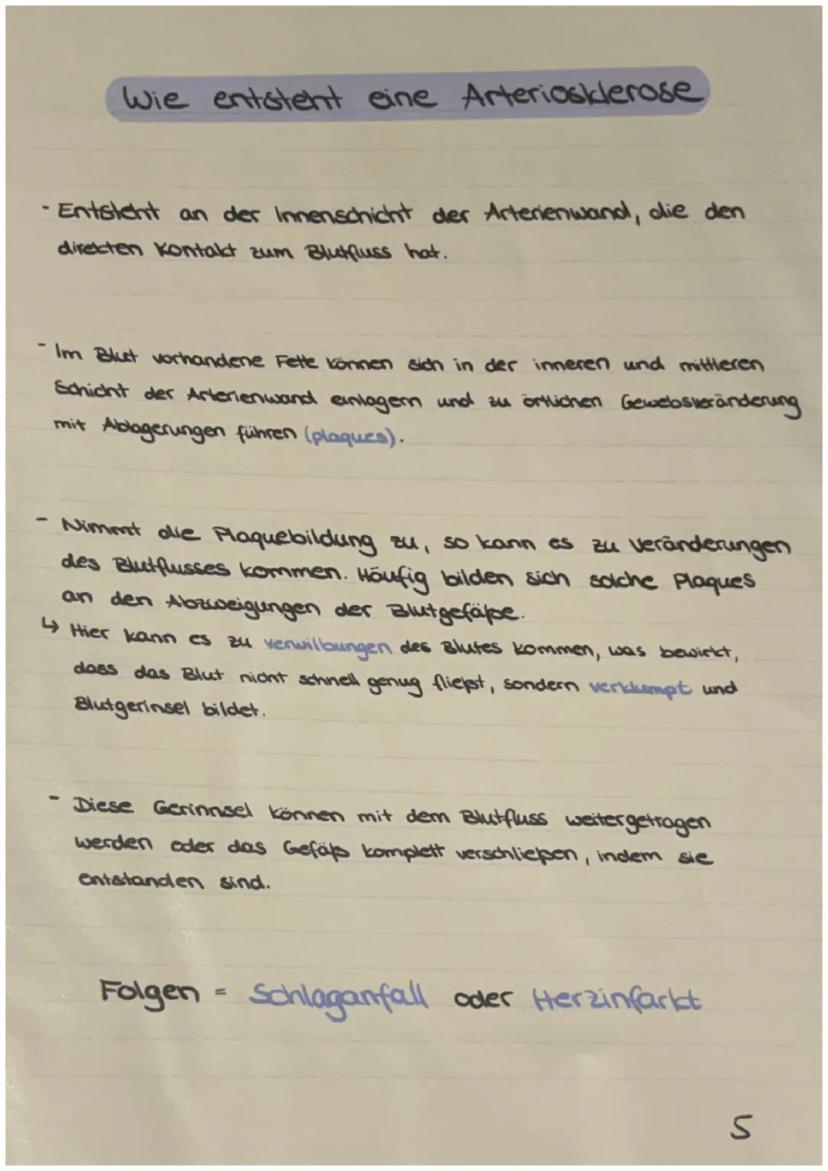 Wie entsteht eine Arteriosklerose
- Entsteht an der Innenschicht der Arterienwand, die den
direkten Kontakt zum Blutfluss hat.
- Im Blut vorhandene Fette können sich in der inneren und mittleren
Schicht der Arterienwand einlagern und zu örtlichen Gewebsveränderung
mit Ablagerungen führen (plaques).
- Nimmt die Plaquebildung zu, so kann es zu Veränderungen
des Blutflusses kommen. Häufig bilden sich solche Plaques
an den Abzweigungen der Blutgefäße.
↳ Hier kann es zu verwilbungen des Blutes kommen, was bewirkt,
dass das Blut nicht schnell genug fließt, sondern verklumpt und
Blutgerinsel bildet.
- Diese Gerinnsel können mit dem Blutfluss weitergetragen
werden oder das Gefäß komplett verschließen, indem sie
entstanden sind.
Folgen = Schlaganfall oder Herzinfarkt
5